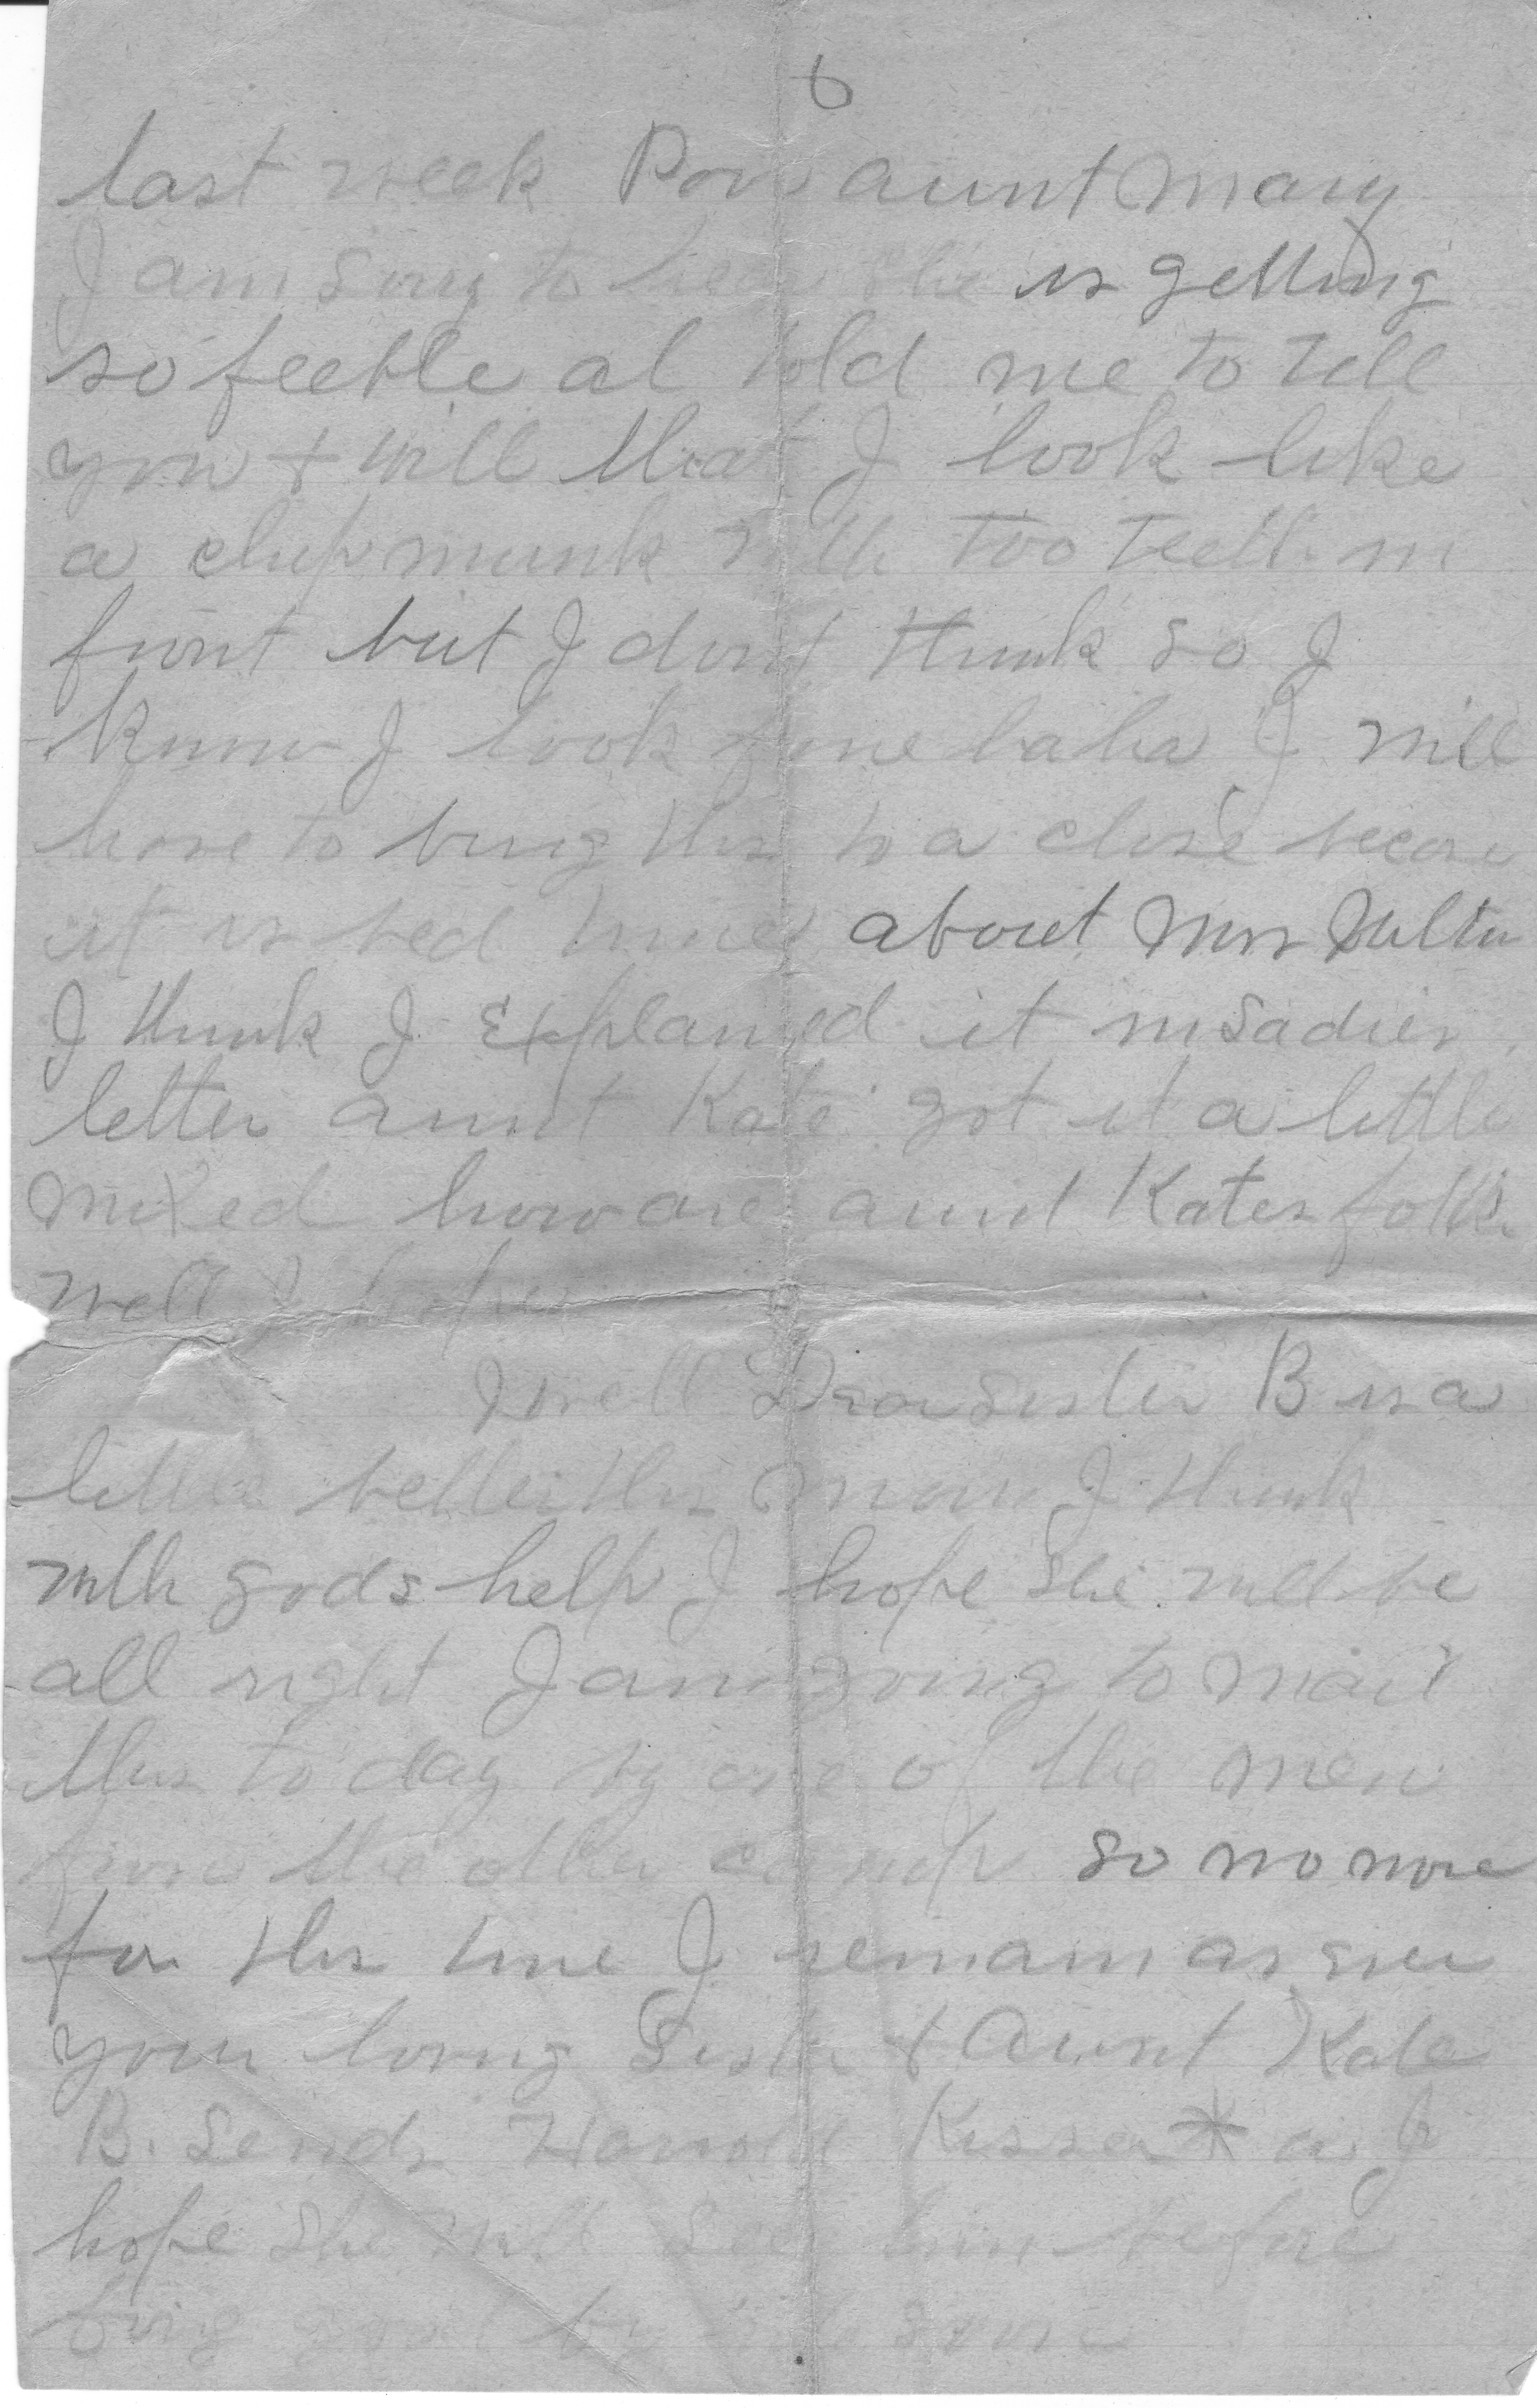 6
last week Poor aunt Mary
I am sorry to hear she is getting
so feeble al told me to tell
you + Will that I look like
a chipmunk with too teeth in
front but I dont think so I
know I look fine haha I will
have to bring this to a close because
it is bed time about Mrs
I think I Explained it in Sadies
letter aunt Kate got it a little
mixed how are aunt Kates folks
well I hope
Well Dear Sister B is a
little better this morn I think
with gods help I hope she will be
all right I am going to mail
this to day by one of the men
from the other camp so no more
for this time I remain as ever
your loving Sister + Aunt Kate
B. sends Harold Kisses * as I
hope she will see him before
long good by